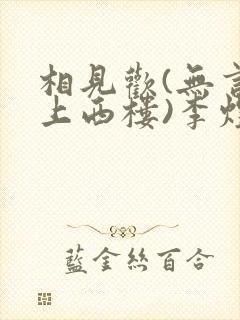 相見歡(無言
上西樓)李煜
藍金絲百合